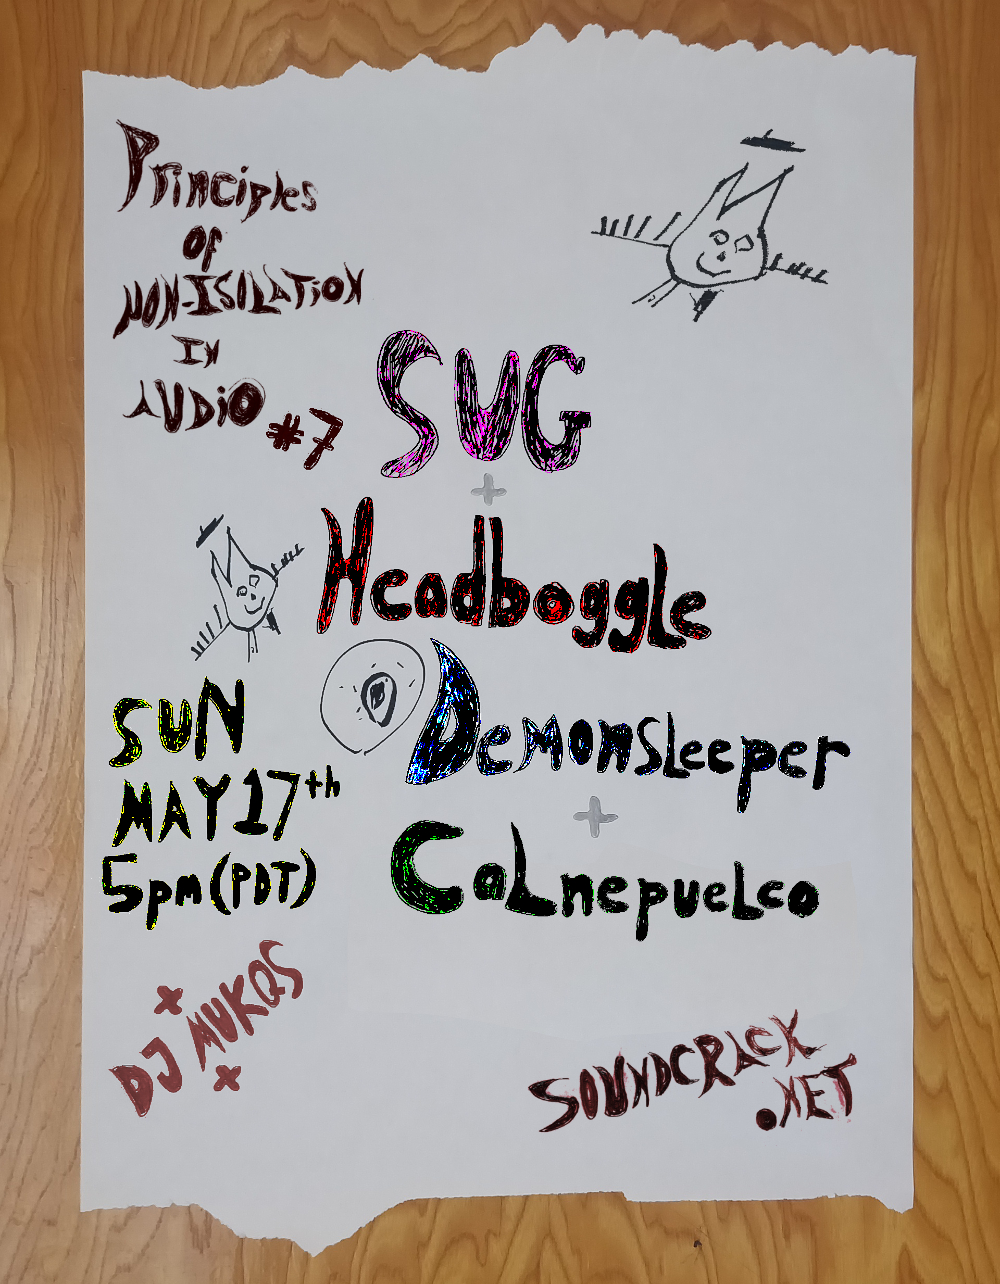 Principles
OF
NON-ISOLATION
IN
AUDIO #7
SUG
+
Headboggle
Demonsleeper
+
Calnepuelco
SUN
MAY 17th
5pm (PDT)
DJ MUKQS
SOUNDCRACK
.NET